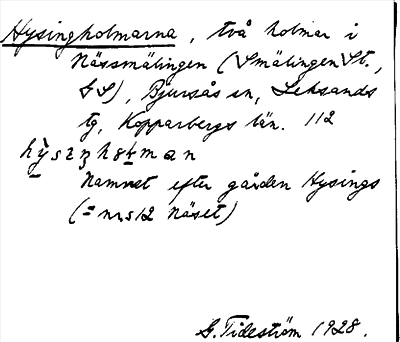 Hysingholmarna, två holmar i
Nässmälingen (Smälingen St.,
GS), Bjursås sn, Leksands
tg, Kopparbergs län. 112
Namnet efter gården Hysings
(= nr 12 Näset)
G. Tideström 1928.